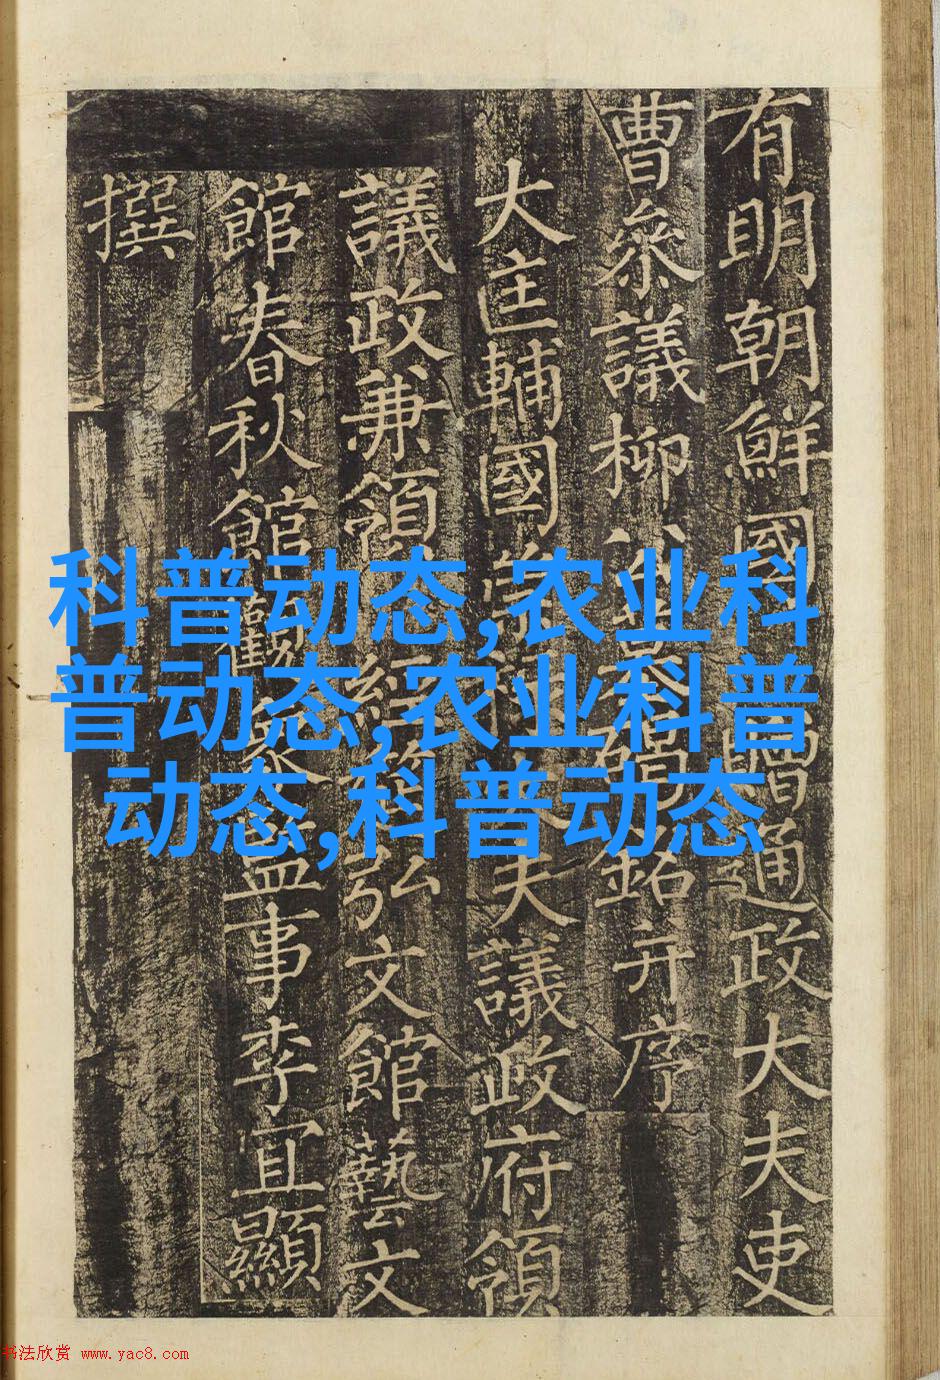 有明朝鮮國贈通政大夫吏
曹叅議柳公墓碣銘并序
大匡輔國崇祿大夫議政府領
議政兼領經筵弘文館藝文
館春秋館觀象監事李宜顯
撰
科普动态,农业科
普动态,农业科普
动态,科普动态
书法欣赏 www.yac8.com